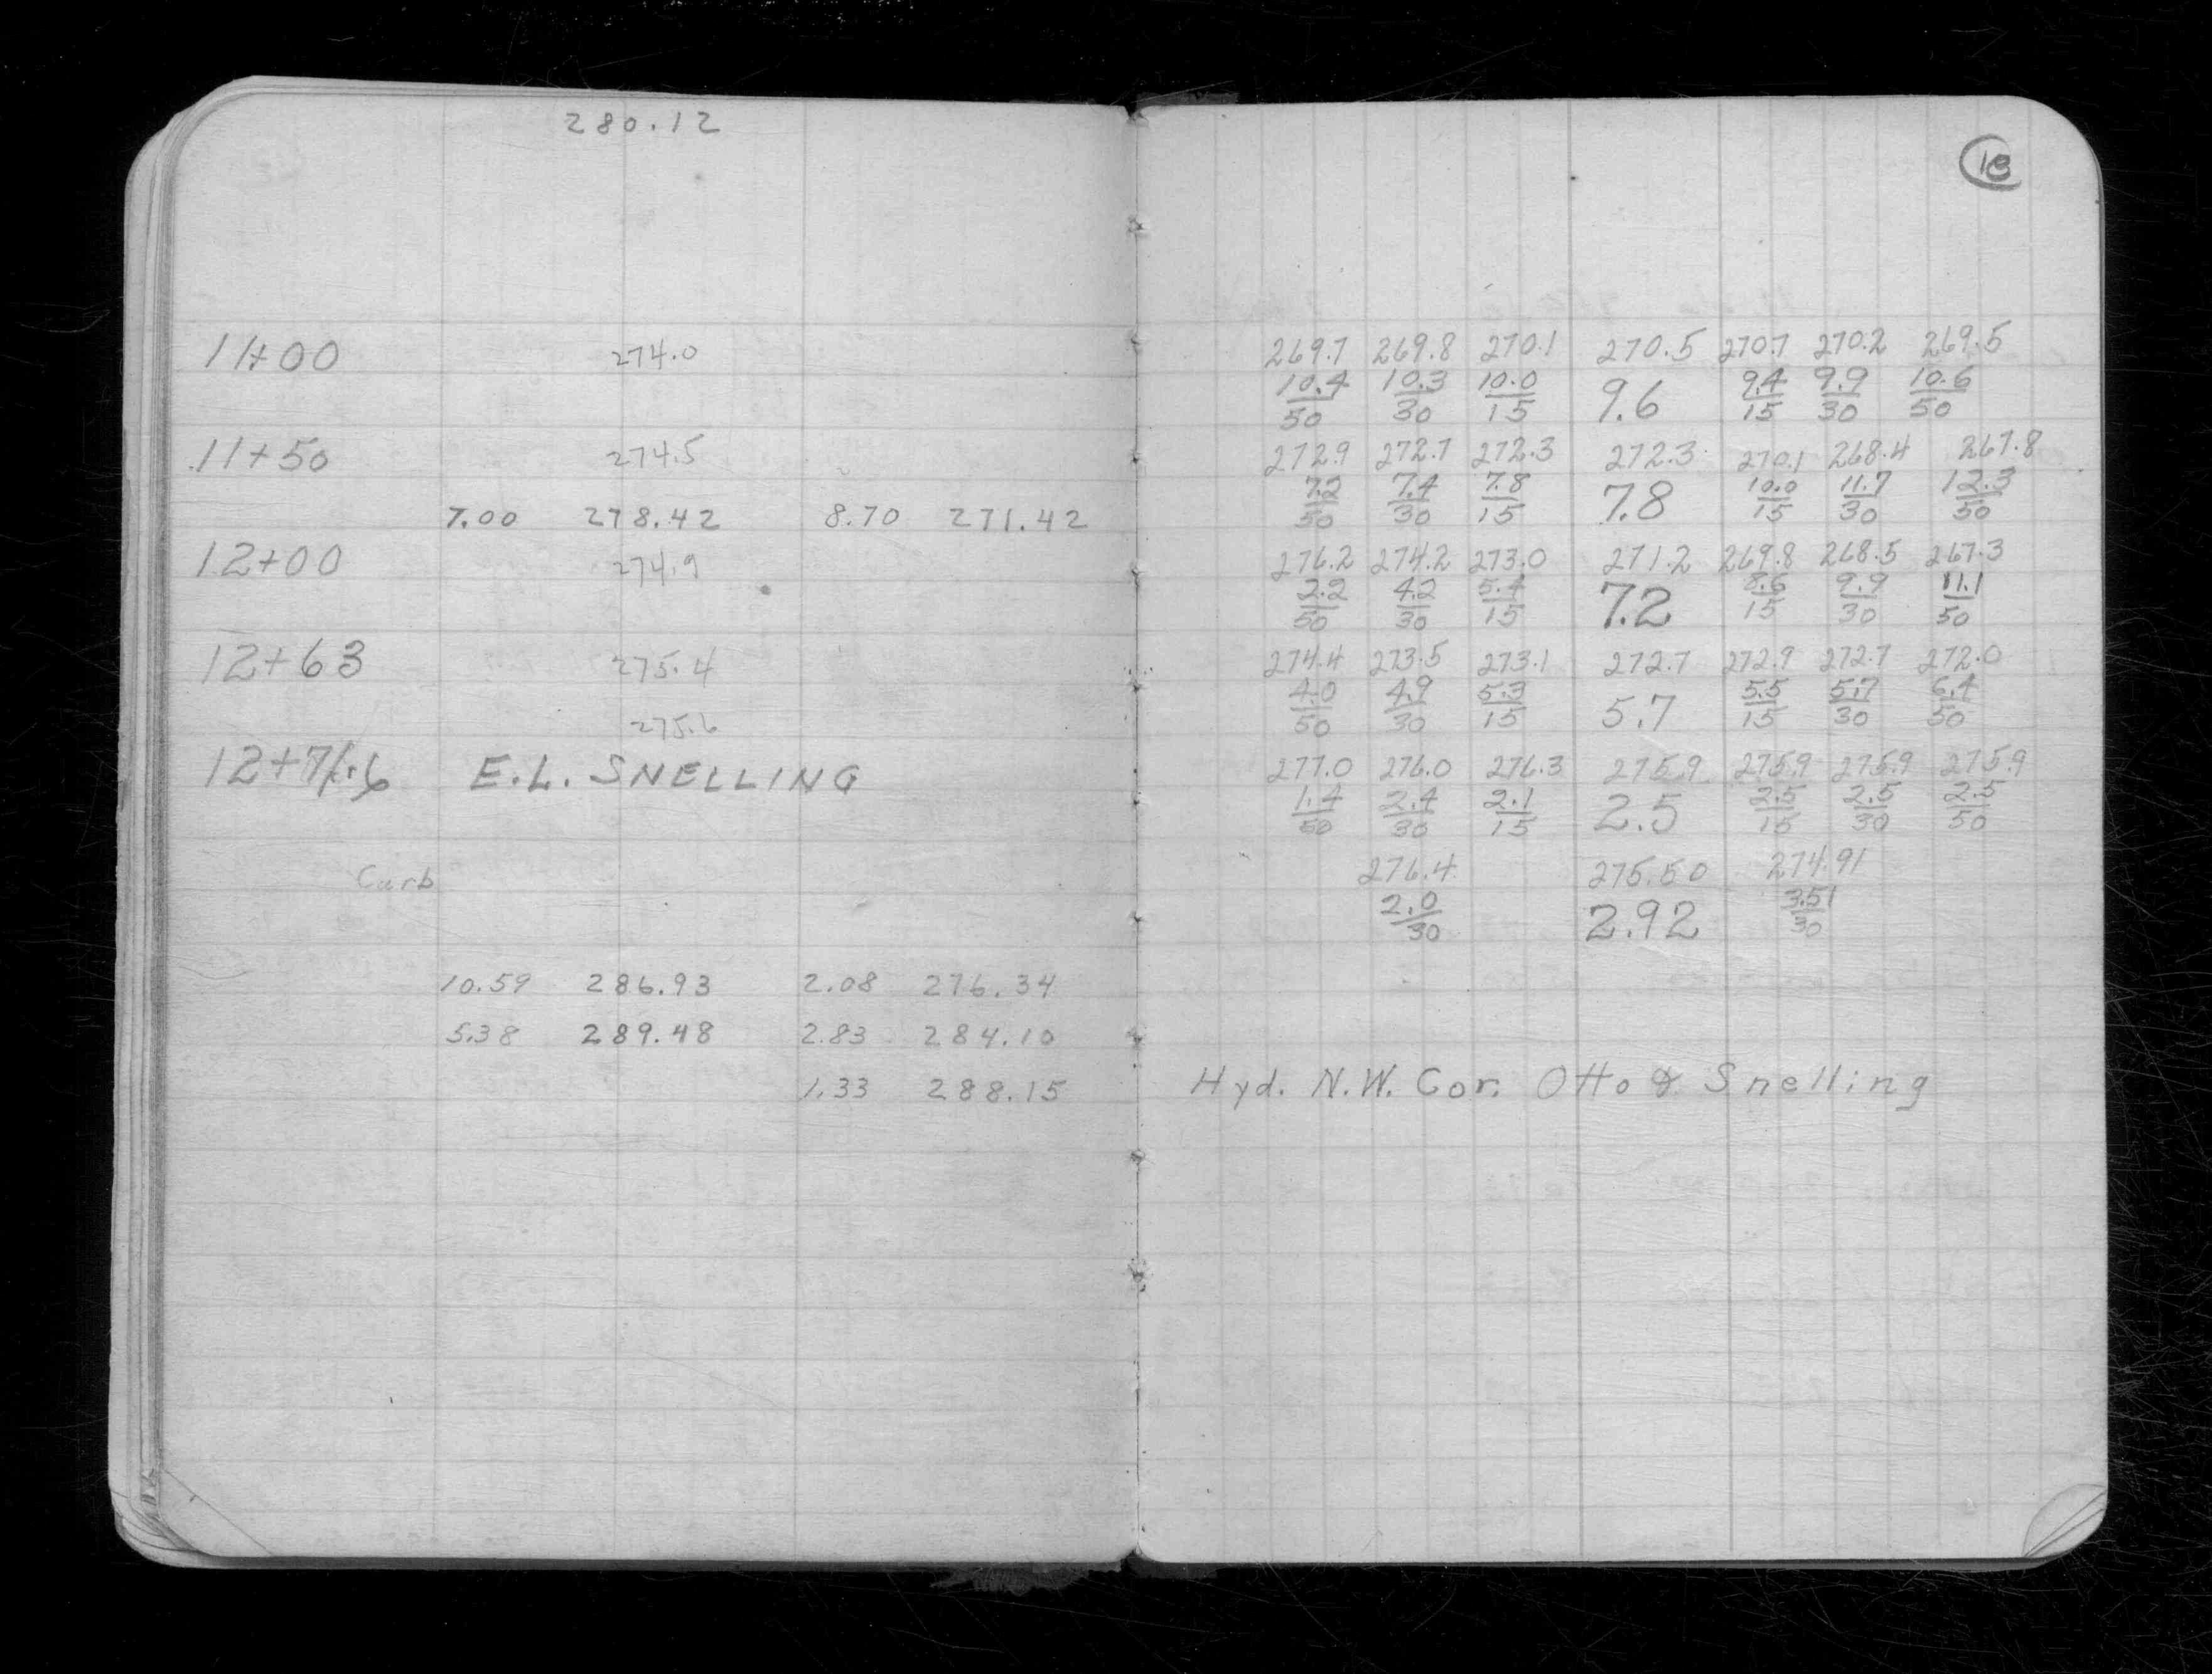 280.12
11+00 274.0
11+50 274.5
7.00 278.42 8.70 271.42
12+00 274.9
12+63 275.4
275.6
E.L. SNELLING
Curb
10.59 286.93 2.08 276.34
5.38 289.48 2.83 284.10
1.33 288.15
18
269.7 269.8 270.1 270.5 270.7 270.2 269.5
10.4 10.3 10.0 9.6 9.4 9.9 10.6
50 30 15 15 30 50
272.9 272.7 272.3 272.3 270.1 268.4 267.8
7.2 7.4 7.8 7.8 10.0 11.7 12.3
50 30 15 15 30 50
276.2 274.2 273.0 271.2 269.8 268.5 267.3
2.2 4.2 5.4 7.2 8.6 9.9 11.1
50 30 15 15 30 50
274.4 273.5 273.1 272.7 272.9 272.7 272.0
4.0 4.9 5.3 5.7 5.5 5.7 6.4
50 30 15 15 30 50
277.0 276.0 276.3 275.9 275.9 275.9 275.9
1.4 2.4 2.1 2.5 2.5 2.5 2.5
50 30 15 15 30 50
276.4 275.50 274.91
2.0 2.92 3.51
30 30
Hyd. N.W. Cor. Otto & Snelling